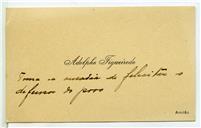 Adolpho Figueiredo
Toma a ousadia de felicitar o
defensor do povo